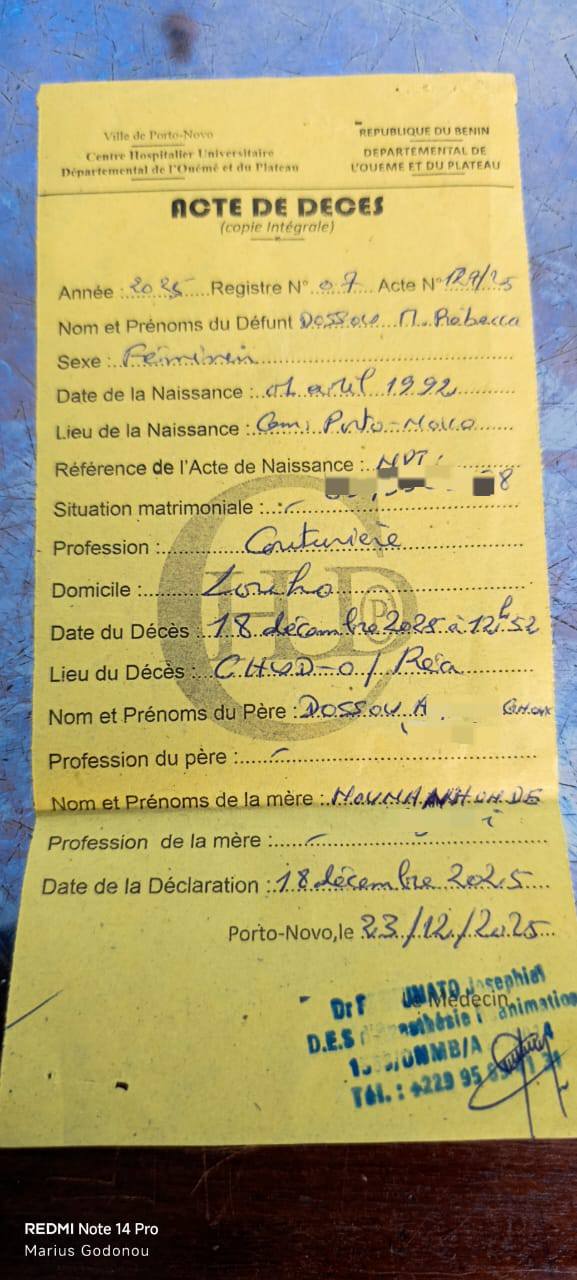 Ville de Porto-Novo
Centre Hospitalier Universitaire
Départemental de l'Ouémé et du Plateau
REPUBLIQUE DU BENIN
DEPARTEMENTAL DE
L'OUEME ET DU PLATEAU
ACTE DE DECES
(copie Intégrale)
Année : 2025 Registre N° 07 Acte N° 127/25
Nom et Prénoms du Défunt Dossou M. Rebecca
Sexe : Féminin
Date de la Naissance : 01 avril 1992
Lieu de la Naissance : Com. Porto-Novo
Référence de l'Acte de Naissance :
8
Situation matrimoniale :
Profession : Couturière
Domicile : Louho
Date du Décès : 18 décembre 2025 à 12h52
Lieu du Décès : CHUD-O / Réa
Nom et Prénoms du Père : DOSSOU A
Profession du père :
Nom et Prénoms de la mère :
Profession de la mère :
Date de la Déclaration : 18 décembre 2025
Porto-Novo, le 23/12/2025
Le Médecin
Dr
D.E.S
/ONMB/A
Tél. : +229 95
CHD P
REDMI Note 14 Pro
Marius Godonou